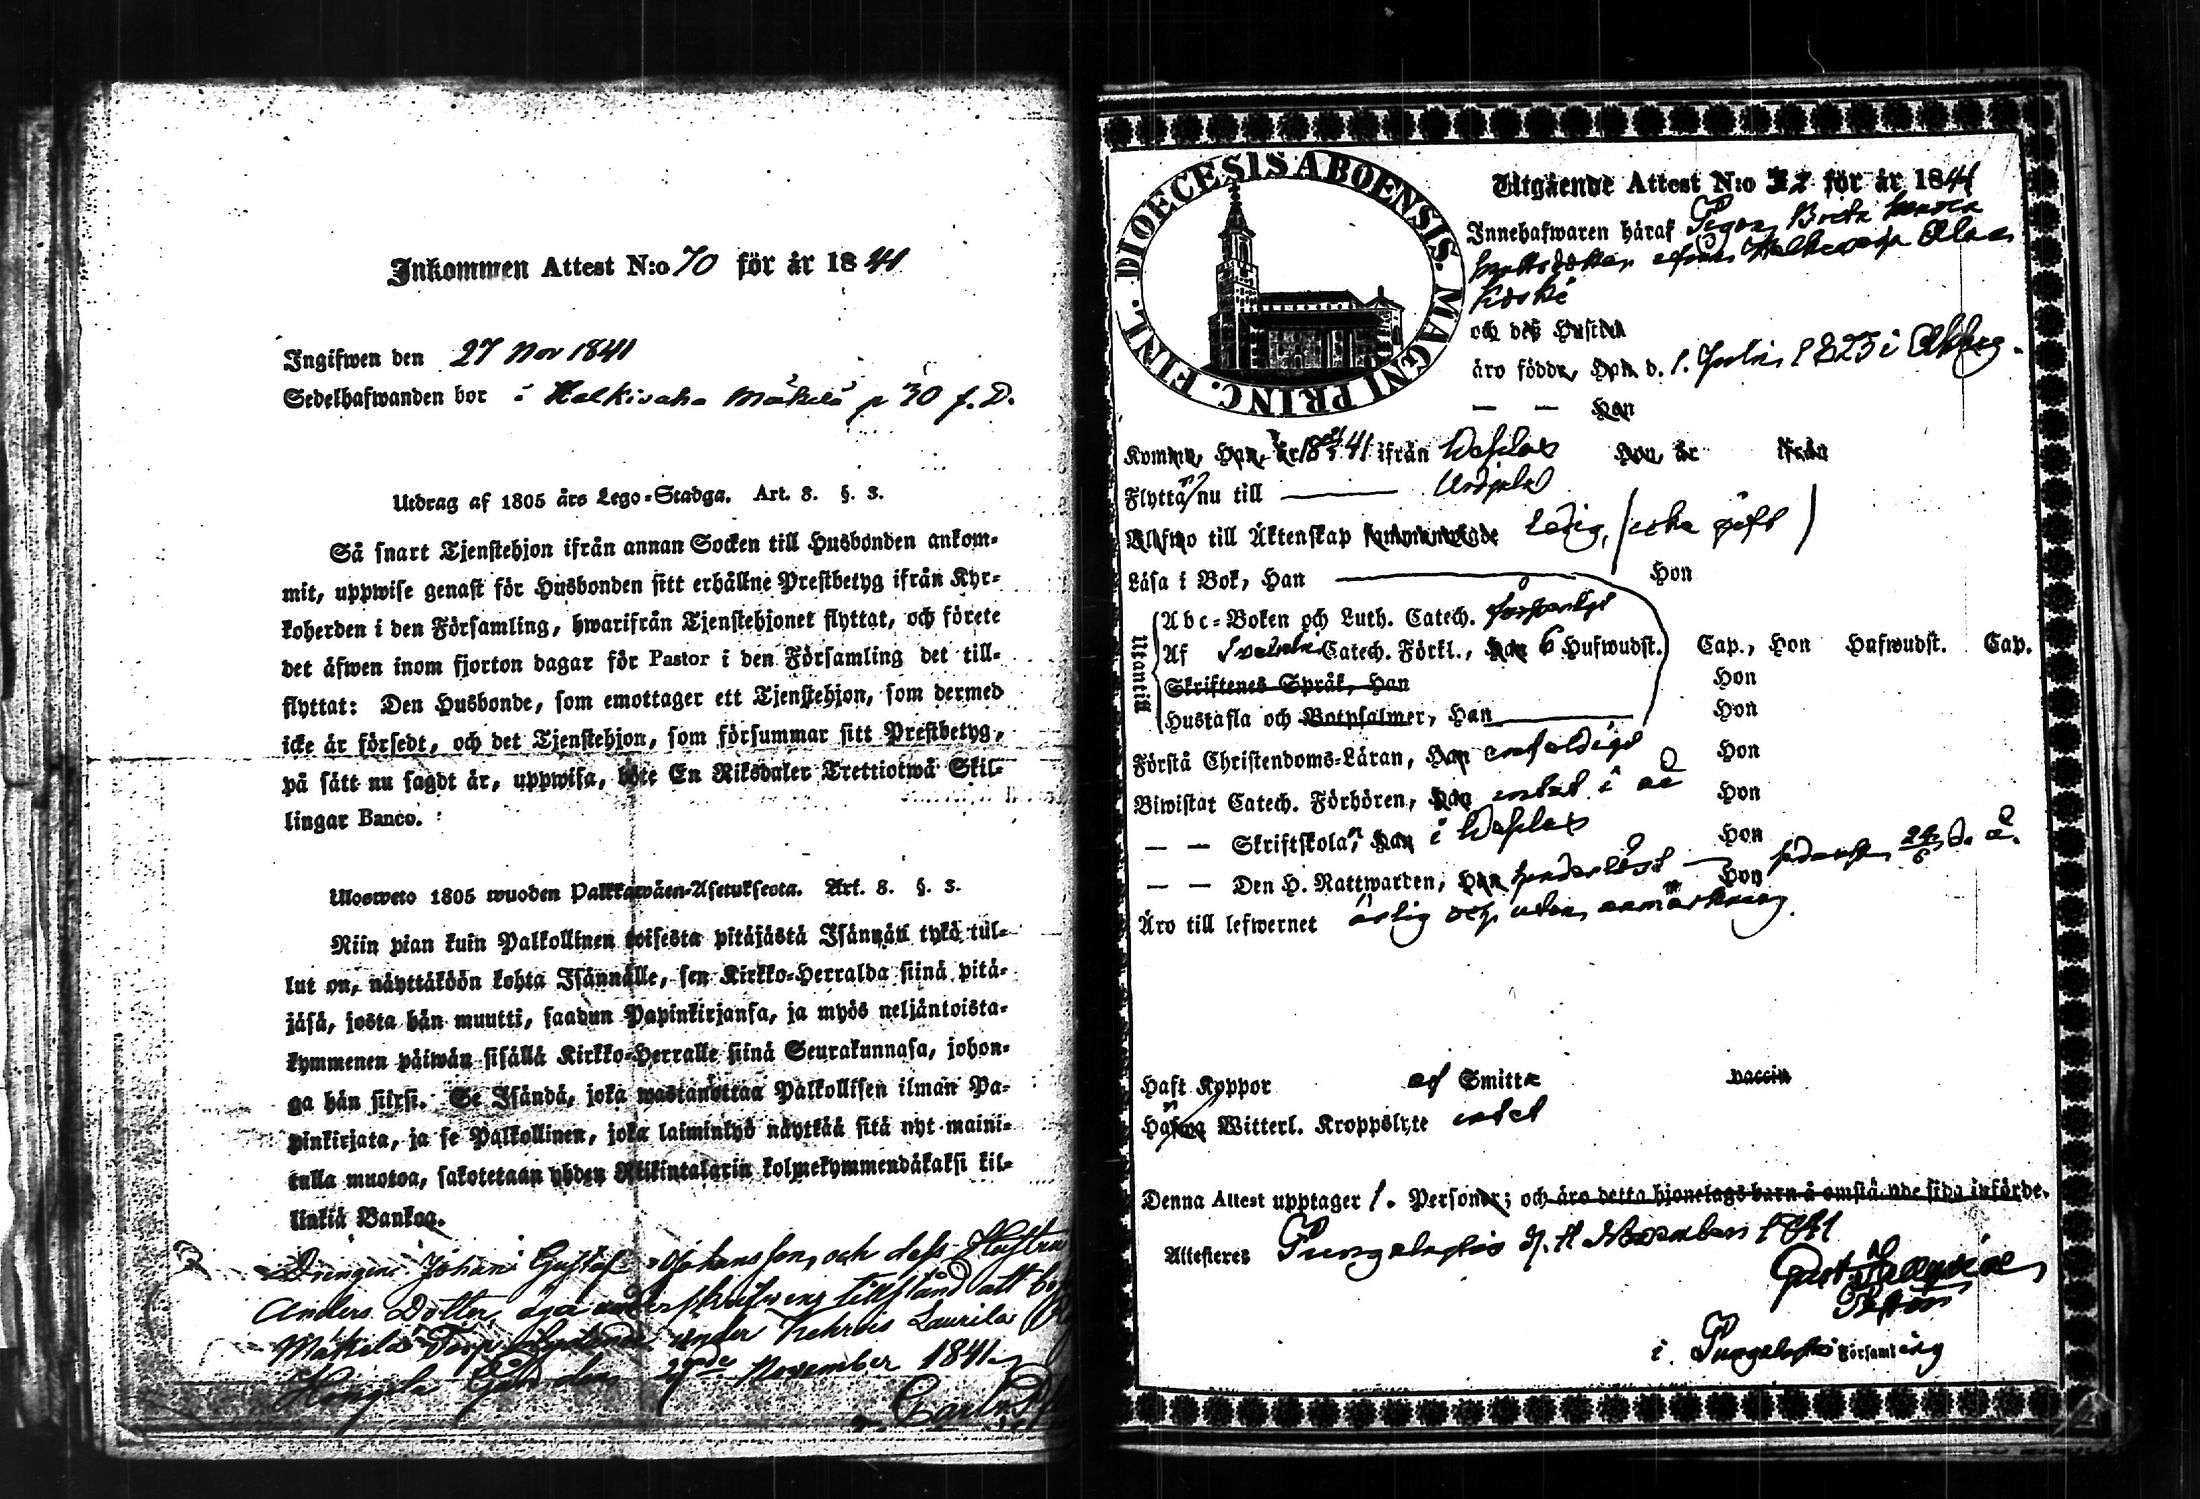 Inkommen Attest N:o 70 för år 1841
Ingifwen den 27 Nov 1841
Sedelhafwanden bor i Halkivaha Mäkelä p 30 f. D.
Utdrag af 1805 års Lego-Stadga. Art. 8. §. 3.
Så snart Tjenstehjon ifrån annan Socken till Husbonden ankom-
mit, uppwise genast för Husbonden sitt erhållne Prestbetyg ifrån Kyr-
koherden i den Församling, hwarifrån Tjenstehjonet flyttat, och förete
det äfwen inom fjorton dagar för Pastor i den Församling det till-
flyttat: Den Husbonde, som emottager ett Tjenstehjon, som dermed
icke är försedt, och det Tjenstehjon, som försummar sitt Prestbetyg,
på sätt nu sagdt är, uppwisa, böte En Riksdaler Trettiotwå Skil-
lingar Banco.
Ulosweto 1805 wuoden Palkkawäen-Asetuksesta. Art. 8. §. 3.
Niin pian kuin Palkollinen toisesta pitäjästä Isännän tykö tul-
lut on, näyttäköön kohta Isännälle, sen Kirkko-Herralda siinä pitä-
jäsä, josta hän muutti, saadun Papinkirjansa, ja myös neljäntoista-
kymmenen päiwän sisällä Kirkko-Herralle siinä Seurakunnasa, johon-
ga hän siirsi. Se Isändä, joka wastanottaa Palkollisen ilman Pa-
pinkirjata, ja se Palkollinen, joka laiminlyö näyttää sitä nyt maini-
tulla muotoa, sakotetaan yhden Riikintalarin kolmekymmendäkaksi kil-
linkiä Bankoa.
Drengen Johan Gustaf Johansson, och dess Hustru
Anders Dotter, äga underskrifwens tillstånd att
Mäkelä Torp under Kehrois Laurila
Gård den November 1841
Carl
DIOECESIS ABOENSIS. MAGNI PRINC. FINL.
Utgående Attest N:o 32 för år 1841
Innehafwaren häraf Pigan Brita
ifrån Halkivaha Ala
Koski
och deß Hustru
äro födde, Han d. 1. Julii 1823 i
— — Hon
Kommo, Han, år 1841 ifrån Hon, år ifrån
Flytta nu till — Urdjala
Alfwo till Äktenskap Ledig, (icke gift)
Läsa i Bok, Han — Hon
Utantill
Abc-Boken och Luth. Catech. försvarligt
Af Svebelii Catech. Förkl., Han 6 Hufwudst. Cap., Hon Hufwudst. Cap.
Skriftenes Språk, Han Hon
Hustafla och Botpsalmer, Han Hon
Förstå Christendoms-Läran, Han enfaldigt Hon
Biwistat Catech. Förhören, Han intet i år Hon
— — Skriftskola, Han i Hon
— — Den H. Nattwarden, Han Hon
Äro till lefwernet ärlig och utan anmärkning.
Haft Koppor af Smitta vaccin
Hafwa Witterl. Kroppslyte intet
Denna Attest upptager 1. Personer; och äro detta hjonelags barn å omstående sida införde.
Attesteres Pungalaitio d. 11 November 1841
Gust.
Pastor
i Pungalaitio Församling